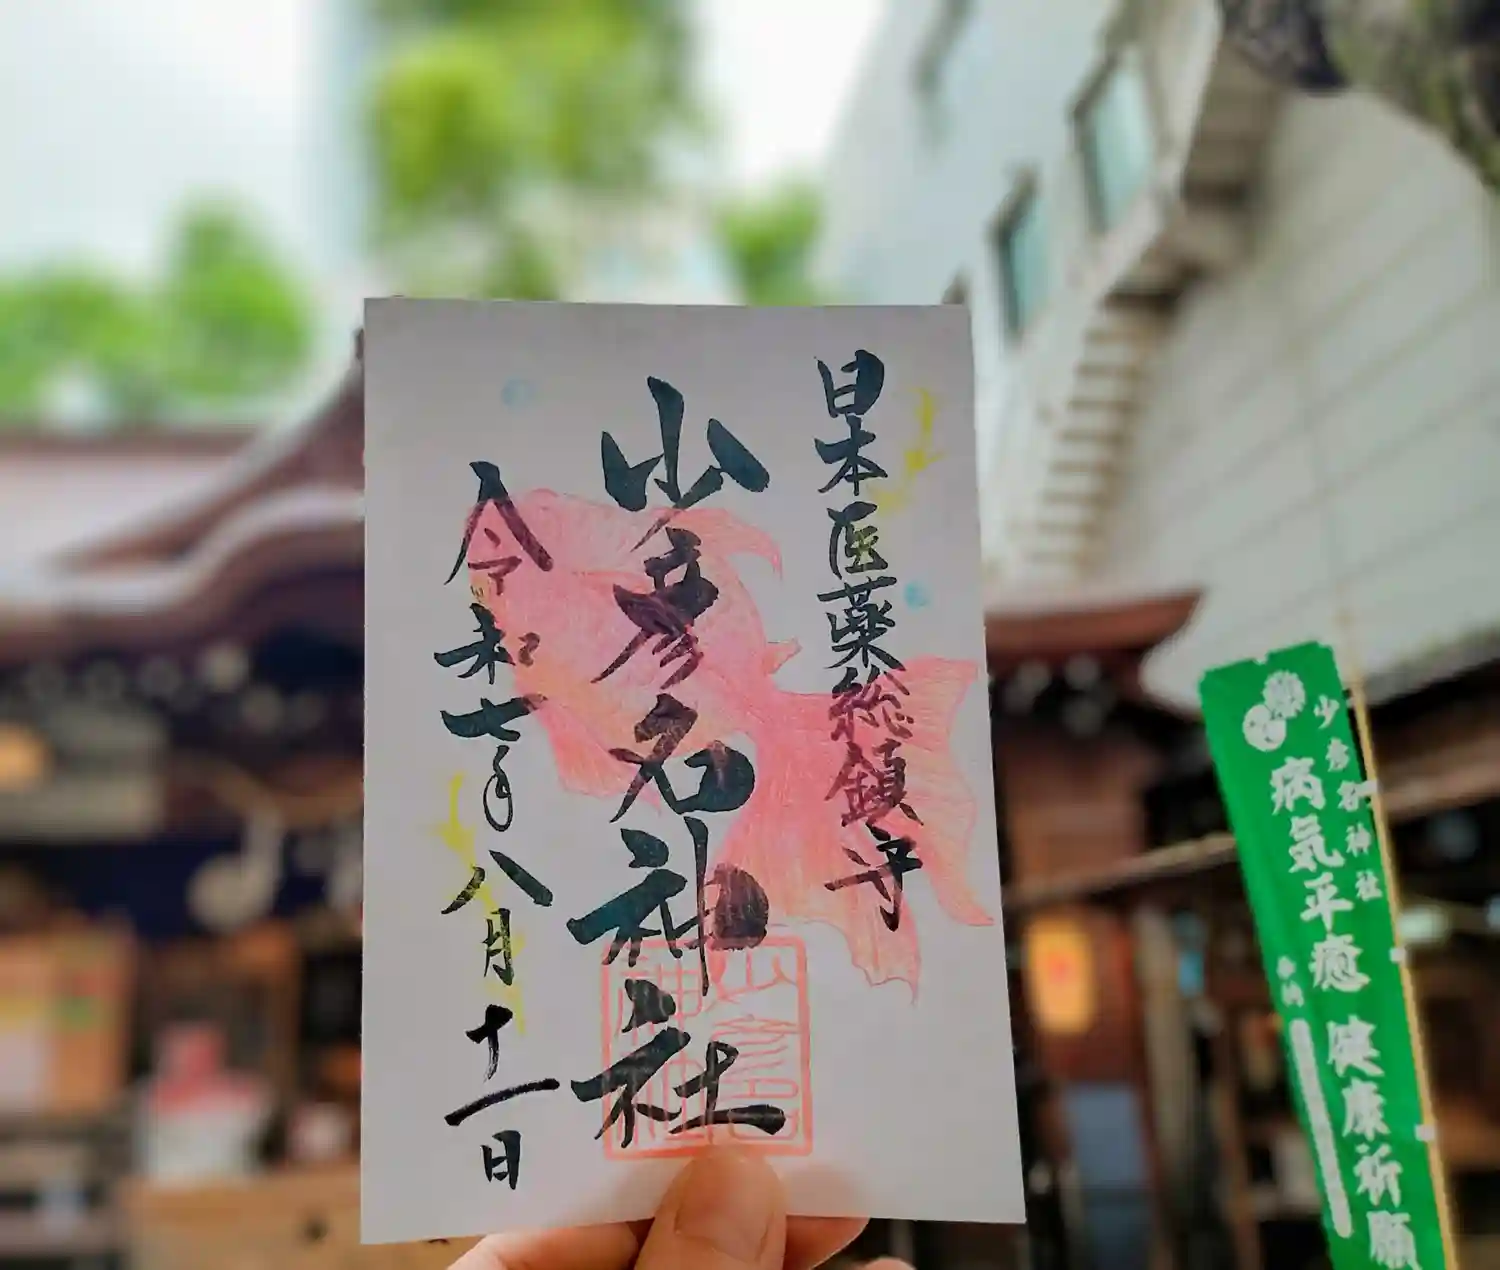 日本医薬総鎮守
少彦名神社
令和七年八月十一日
少彦名神社
少彦名神社
病気平癒 健康祈願
奉納